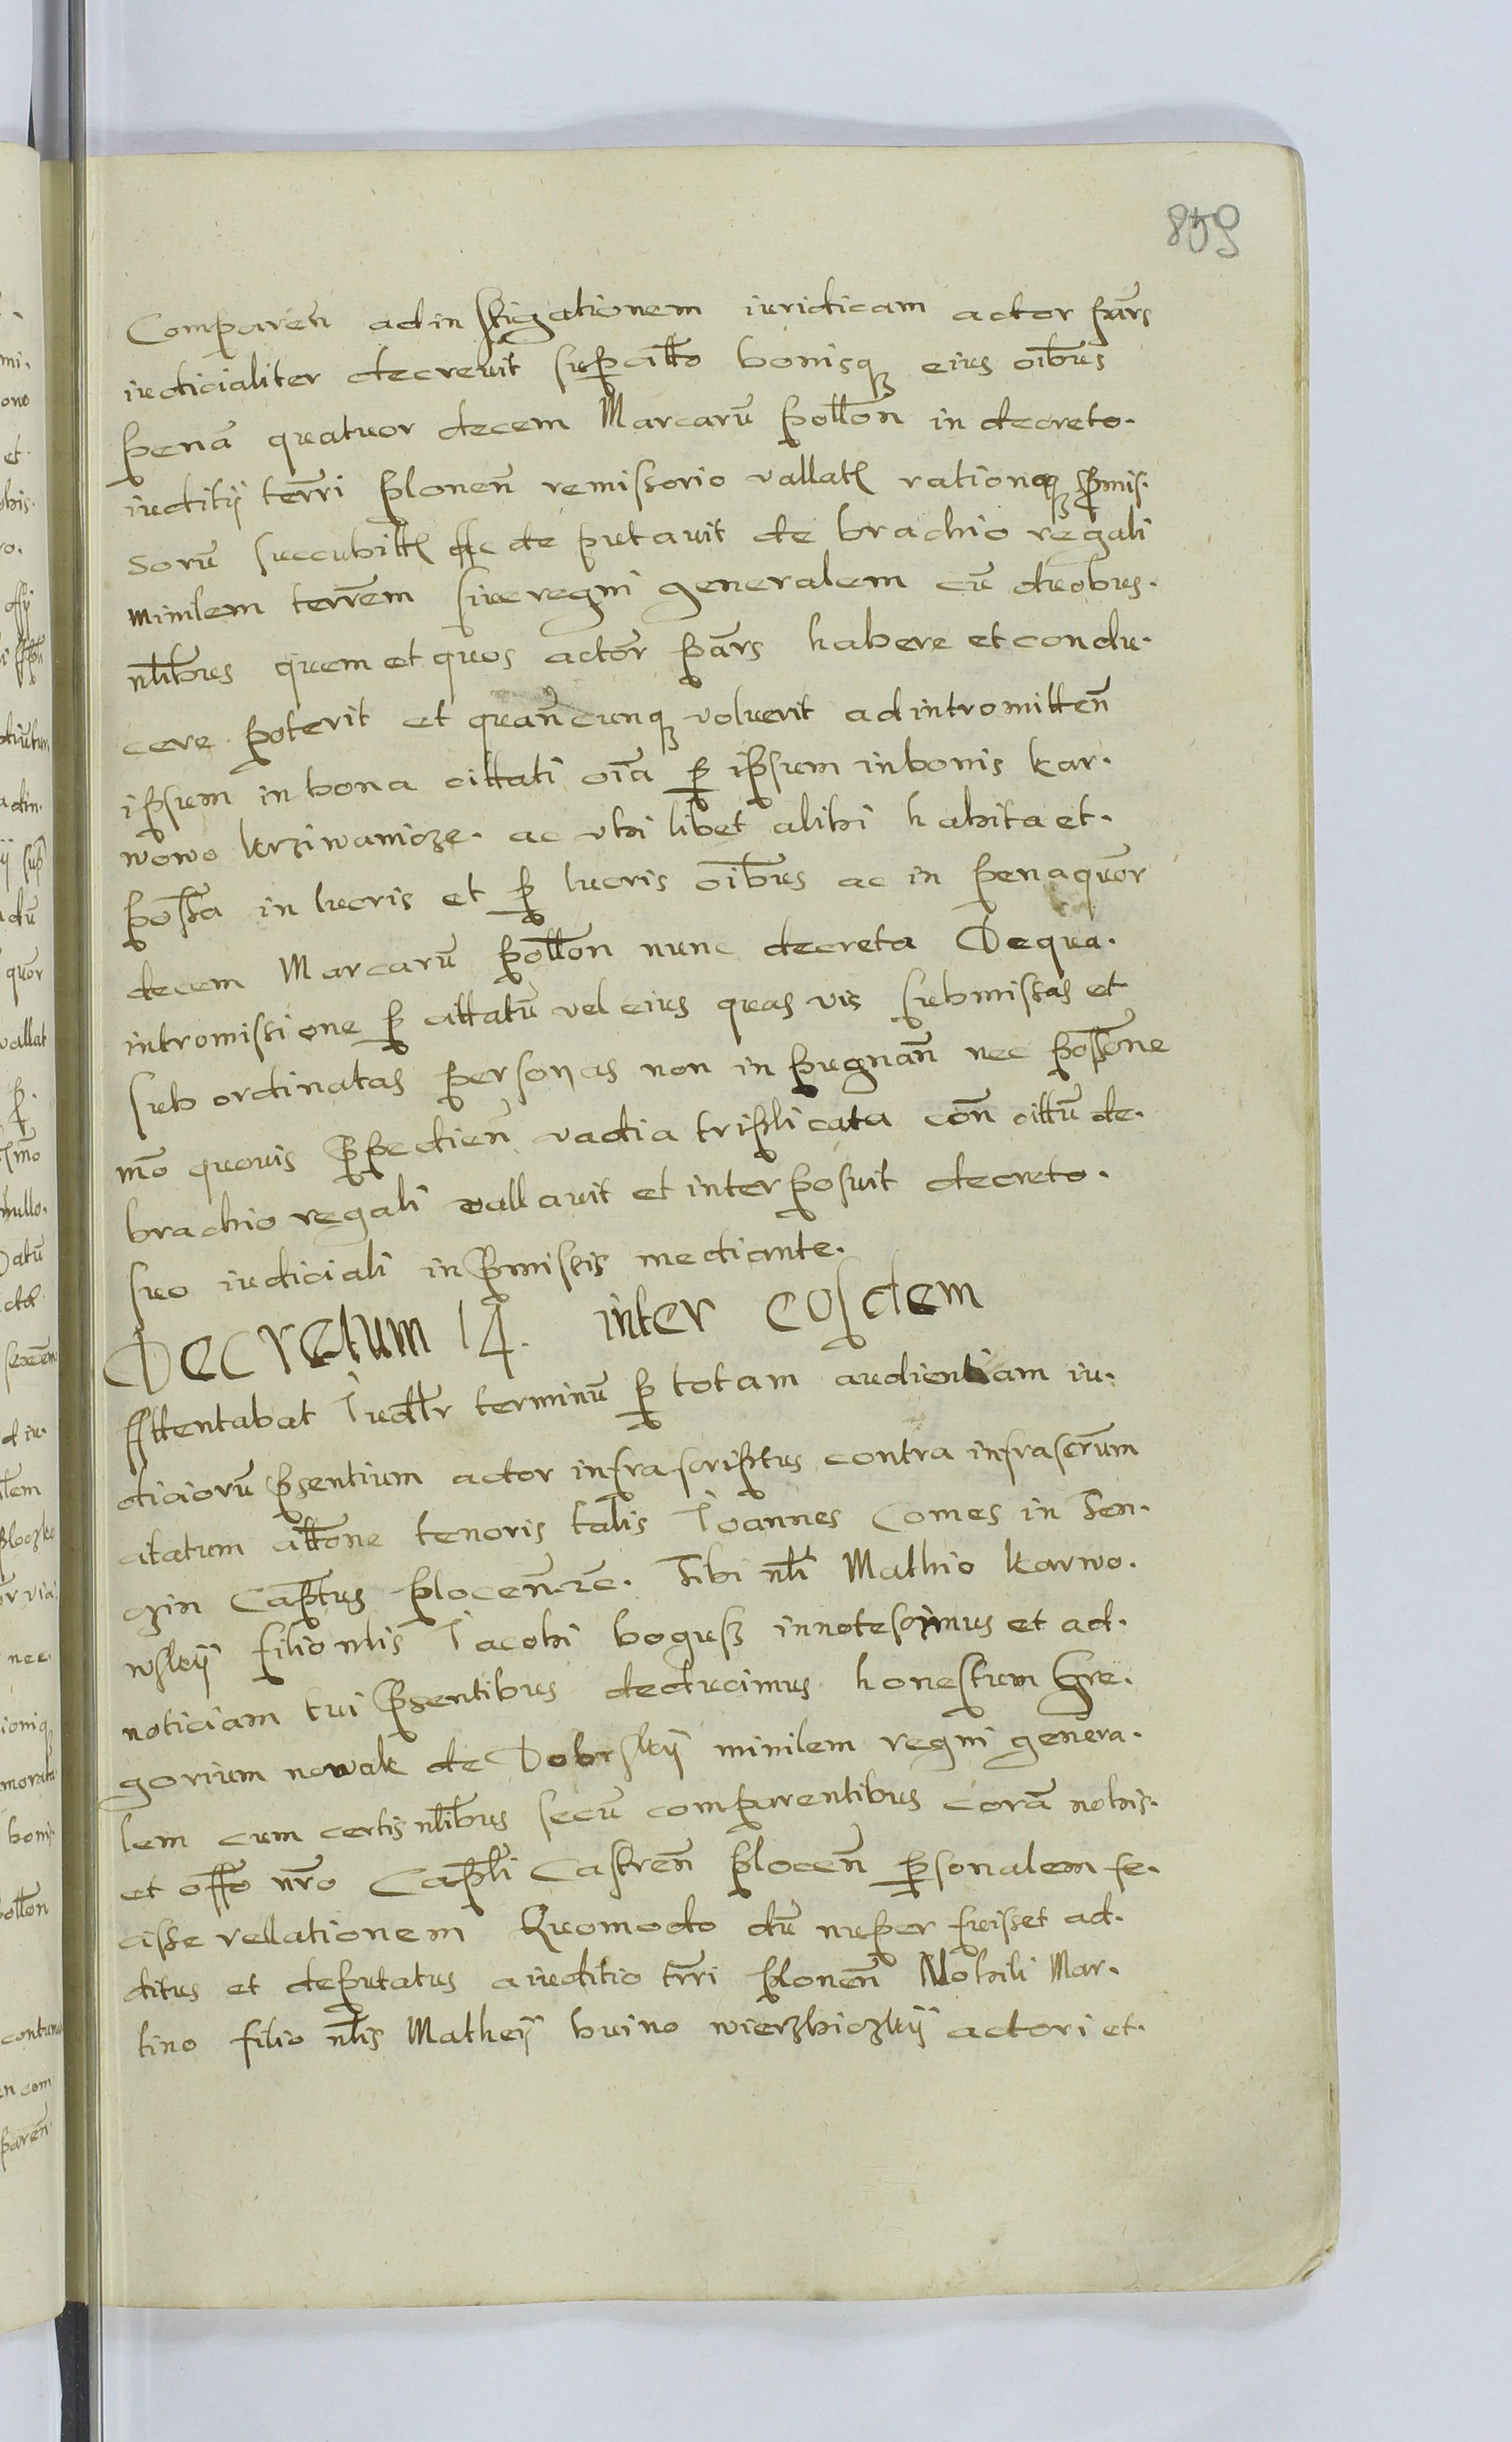 859
Comparen̄ ad instigationem iuridicam actor pars
iudicialiter decrevit sup citt̄o bonisq eius oib̄us
penā quatuor decem Marcarū pollon̄ in decreto
iuditÿ terrī plonen̄ remissorio vallat rationeq p̄mis
sorū succubitt ac deputavit de brachio regali
minlem terrem̄ sive regni generalem cū duobus
nlibus quem et quos actor̄ pars habere et condu
cere poterit et quan̄cunq voluerit ad intromitten̄
ipsum in bona cittati oīa p ipsum in bonis kar
wowo krziwanicze ac ubi libet alibi habita et
possa in lucris et p lucris oib̄us ac in pena quor̄
decem Marcarū pollon nunc decreta De qua
intromissione p cittatū vel eius quas vis submissas et
sub ordinatas personas non inpugnan̄ nec posso͞ne
mō quovis p̄pedien̄ vadia triplicata con̄ cittū de
brachio regali vallavit et interposuit decreto
suo iudiciali in p̄missis mediante.
Decretum 14. inter eosdem
Attentabat Iudllr terminū p totam audientiam iu
diciorū p̄sentium actor infrascriptus contra infrascrūm
citatum citt̄one tenoris talis Ioannes Comes in Ten
czin Cap̄tus plocen̄ rc. Tibi nlī Mathio karwo
wskÿ filio nlis Iacobi bogusz innotescimus et ad
noticiam tui p̄sentibus deducimus honestum Gre
gorium nowak de Dobrskÿ minilem regni genera
lem cum certis nlibus secū comparentibus corā nobis
et offo nr̄o Cap̄lī Castren̄ plocen̄ p̄sonalem fe
cisse rellationem Quomodo dū nuper fuisset ad
ditus et deputatus a iuditio trrī plonen̄ Nobili Mar
tino filio nlīs Matheÿ buino wierzbiczkÿ actori et